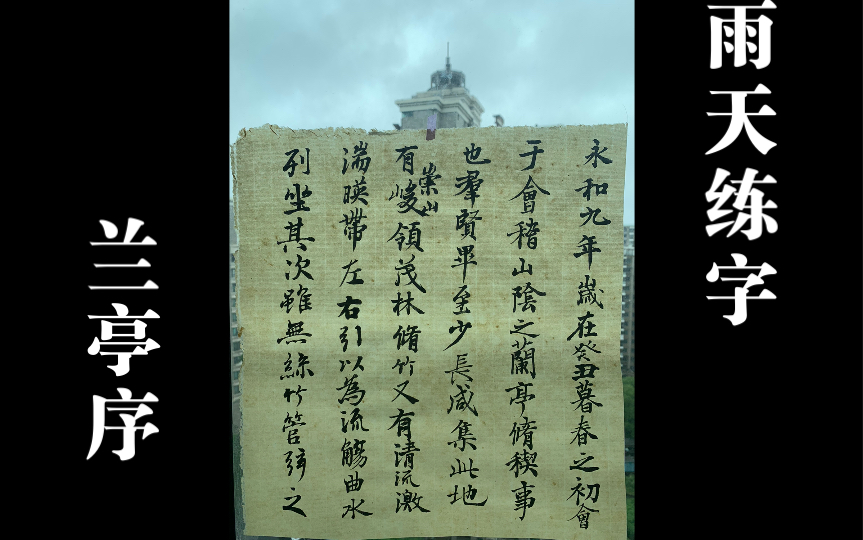 雨天练字
永和九年歲在癸丑暮春之初會
于會稽山陰之蘭亭脩稧事
也羣賢畢至少長咸集此地
有崇山峻領茂林脩竹又有清流激
湍暎帶左右引以為流觴曲水
列坐其次雖無絲竹管弦之
兰亭序